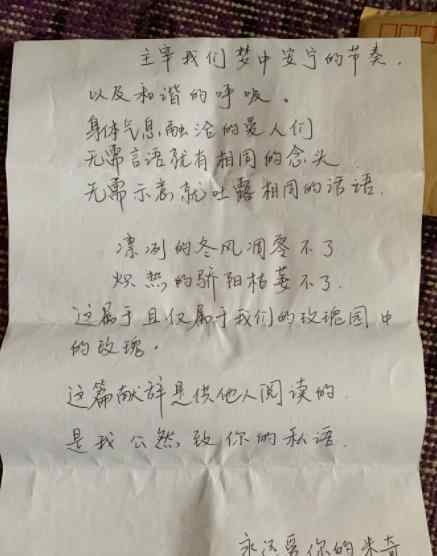 主宰我们梦中安宁的节奏,
以及和谐的呼吸。
身体气息融洽的爱人们
无需言语就有相同的念头
无需示意就吐露相同的话语.
凛冽的冬风凋零不了
炽热的骄阳枯萎不了.
这属于且仅属于我们的玫瑰园中
的玫瑰。
这篇献辞是供他人阅读的
是我公然致你的私语.
永远爱你的米奇